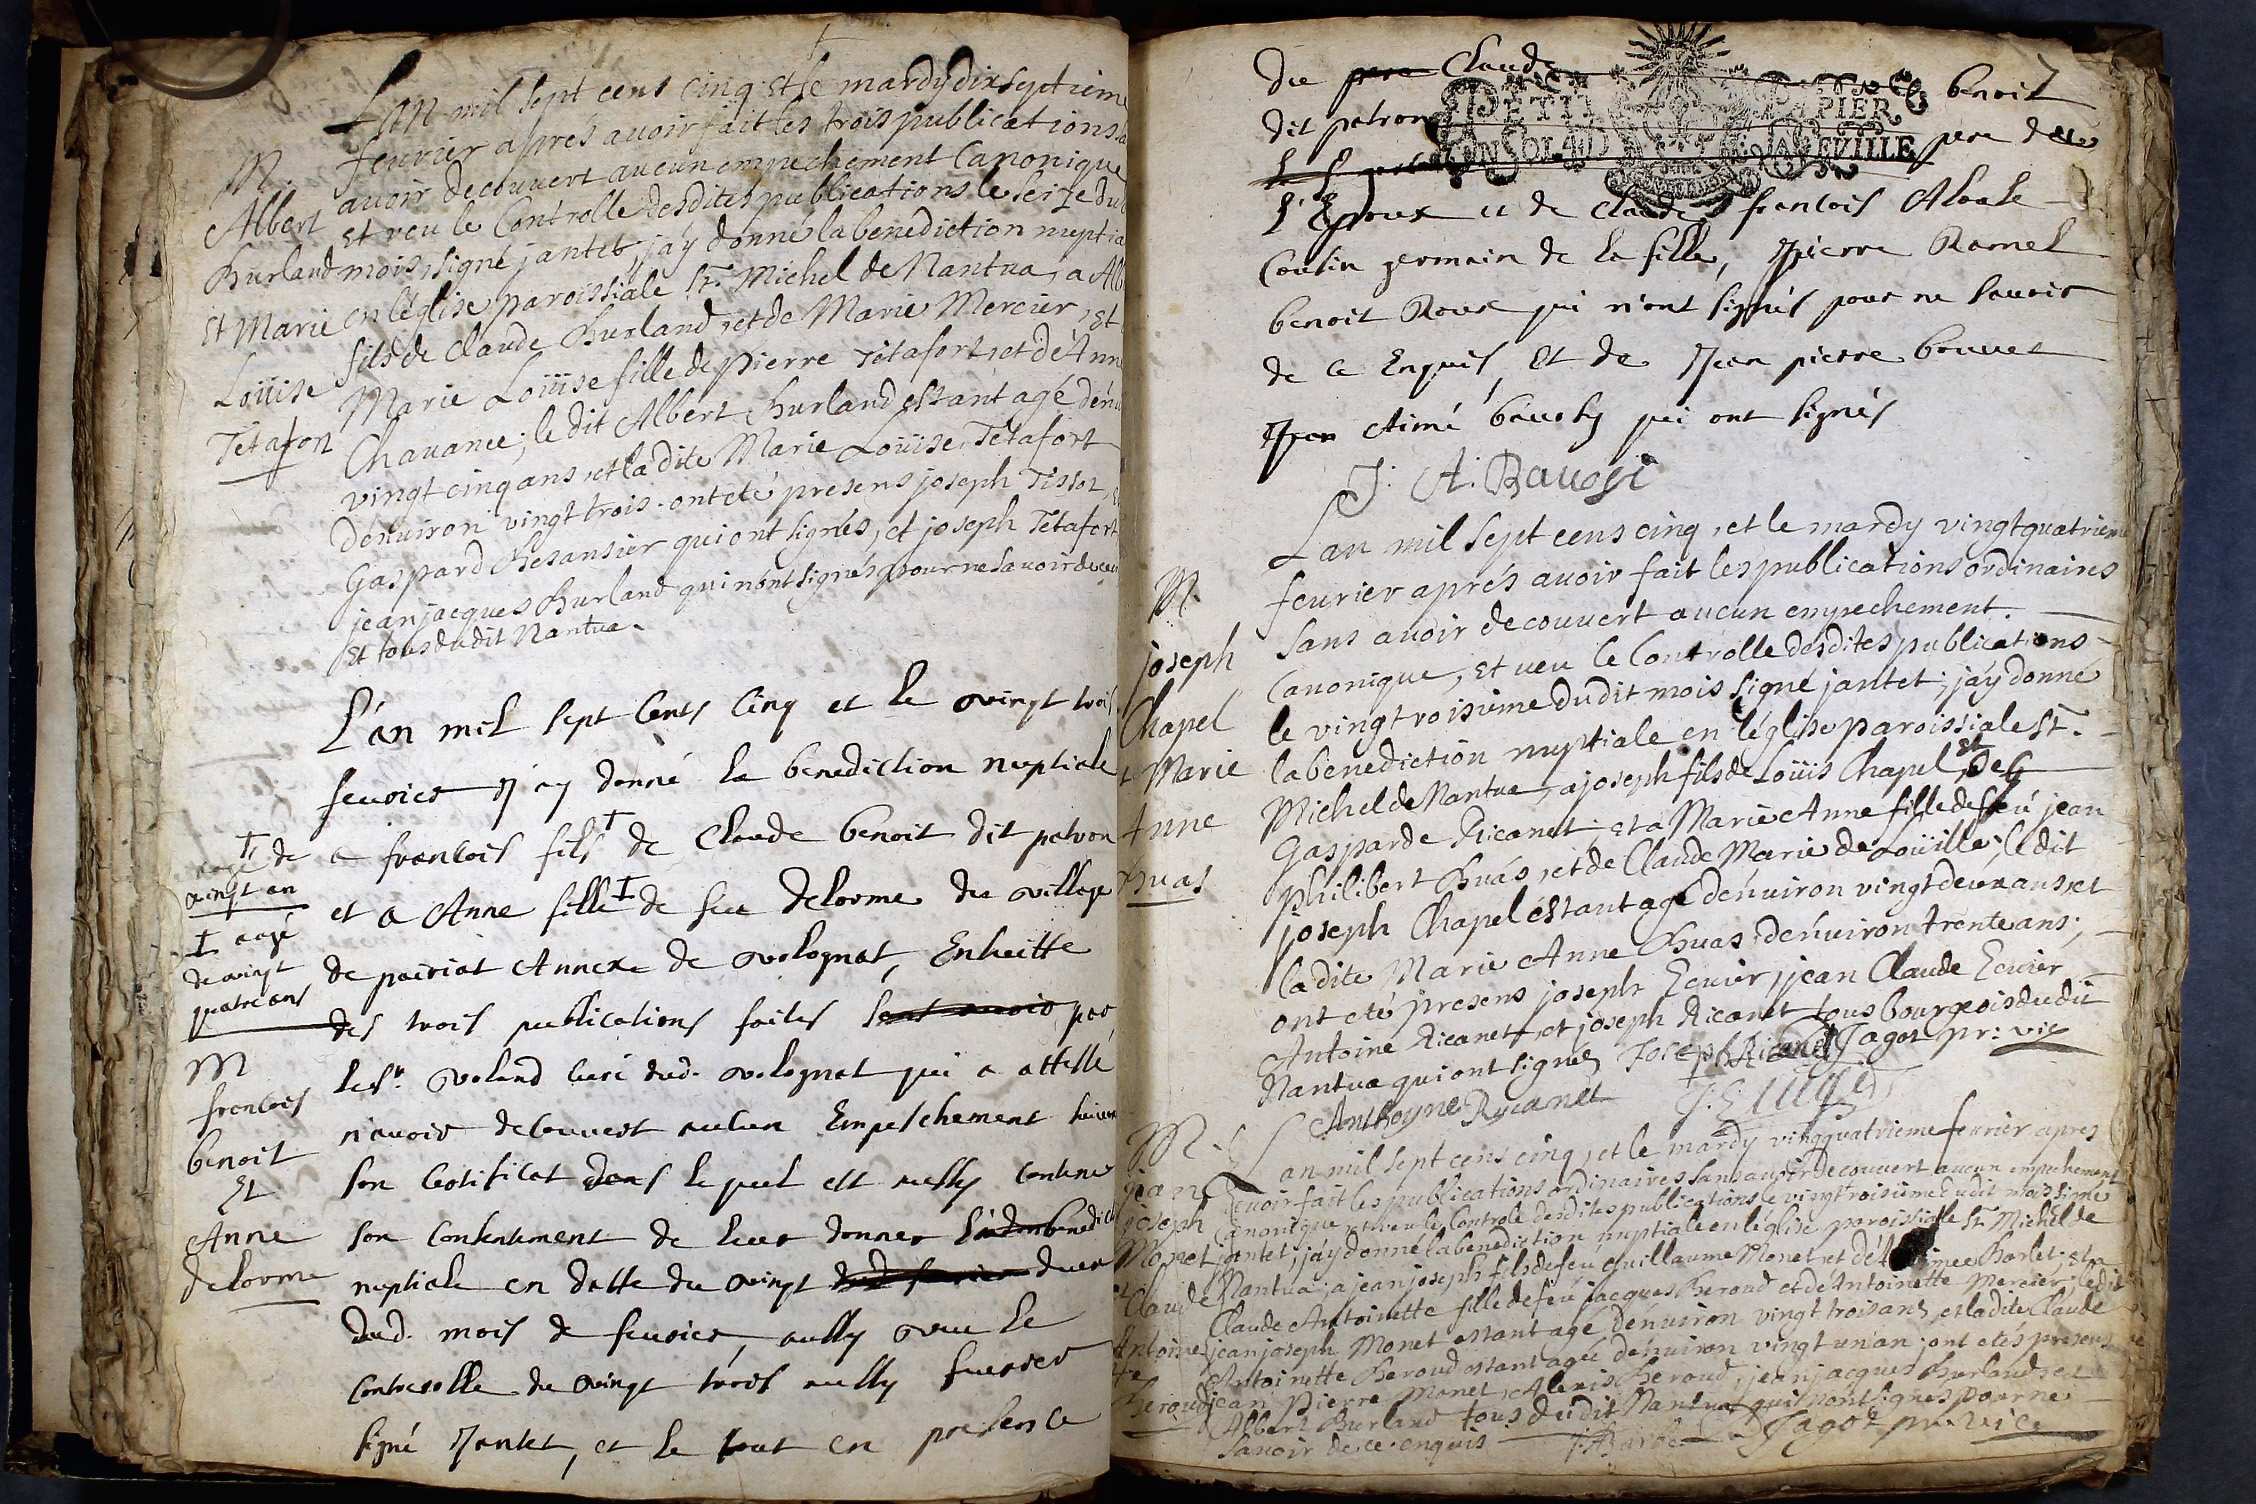 M.
Albert
Hurland
Et Marie
Loüise
Tetafon
Lan mil sept cens cinq et le mardy dixseptieme
feurier aprés auoir fait les trois publications
auoir decouuert aucun empechement Canonique
et veu le Controlle desdites publications le seize du
mois, signé jantet, j'ay donné la benediction nuptia
en léglise paroissiale St. Michel de Nantua, a Alb
fils de Claude Hurland, et de Marie Mercier, et
Marie Loüise fille de Pierre Tétafort, et dé Ann
Chauance; le dit Albert Hurland estant agé dénu
vingt cinq ans, et la dite Marie Loüise Tétafort
dénuiron vingt trois. ont eté presens joseph Tissot,
Gaspard Besansier qui ont signés, et joseph Tétafort
jean jacques Hurland qui n'ont signés pour ne sauoir de ce
Et tous dudit Nantua.
L'an mil sept Cents Cinq et le vingt trois
feurier J'ay donné la benediction nuptiale
a francois fils † de Claude benoit dit patron
et a Anne fille ‡ de feu delorme du village
de peiriat Annexe de volognat, Ensuitte
des trois publications faites sans auoir par
le sr. voland curé dud. volognat qui a attesté
n'auoir decouuert aucun Empeschement suiuant
son Certificat dans lequel est aussy contenu
son consentement de leur donner la benedict
nuptiale en datte du vingt deux
dud. mois de feurier, aussy veu le
controolle du vingt trois aussy feurier
signé Jantet, et le tout en presence
† de
vingt an
‡ agé
de vingt
quatre ans
M
francois
benoit
Et
Anne
delorme
du pere Claude benoit
dit patron pere de
PETIT PAPIER
UN SOL 4 D LA FEUILLE
l'Epoux et de Claude francois Aloale
Cousin germain de la fille, Pierre Ramel
benoit Roux qui n'ont signés pour ne sauoir
de ce Enquis, Et de Jean pierre bouuet
Jean Aimé baudy qui ont signés
J. A. Baudji
M.
joseph
Chapel
et Marie
Anne
Huas
Lan mil sept cens cinq, et le mardy vingtquatrieme
feurier aprés auoir fait les publications ordinaires
sans auoir decouuert aucun empechement
Canonique, et veu le Controlle desdites publications
le vingt roisiéme dudit mois signé jantet; j'ay donné
la benediction nuptiale en léglise paroissiale St.
Michel de Nantua, a joseph fils de Loüis Chapel, et de
Gasparde Ricanet; et a Marie Anne fille de feú jean
Philibert Huás, et de Claude Marie de Loüille; le dit
joseph Chapel estant agé dénuiron vingt deux ans, et
la dite Marie Anne Huas dénuiron trente ans;
ont eté presens joseph Ecuier, jean Claude Ecuier
Antoine Ricanet, et joseph Ricanet tous bourgeois dudit
Nantua qui ont signés Joseph Ricanet Jagot pr: vic
Anthoyne Rycanet
M.
jean
joseph
Monet
et
Claude
Antoine
tte
Heroud
Lan mil sept cens cinq, et le mardy vingquatrieme feurier apres
auoir fait les publications ordinaires sans auoir decouuert aucun empechement
Canonique, et veu le Controle desdites publications le vingt roisieme dudit mois signé
jantet; j'ay donné la benediction nuptiale en léglise paroissiale St. Michel de
Nantua, a jean joseph fils de feú Guillaume Monet, et dé Harlet, et a
Claude Antoinette fille de feú jacques Heroud et de Antoinette Mercier; le dit
jean joseph Monet estant agé dénuiron vingt trois ans, et la dite Claude
Antoinette Heroud estant agée dénuiron vingt un an; ont etés presens
jean Pierre Monet, Alexis Heroud, jean jacques Hurland, et
Albert Hurland tous dudit Nantua qui n'ont signés pour ne
sauoir de ce enquis Jagot pr: vice